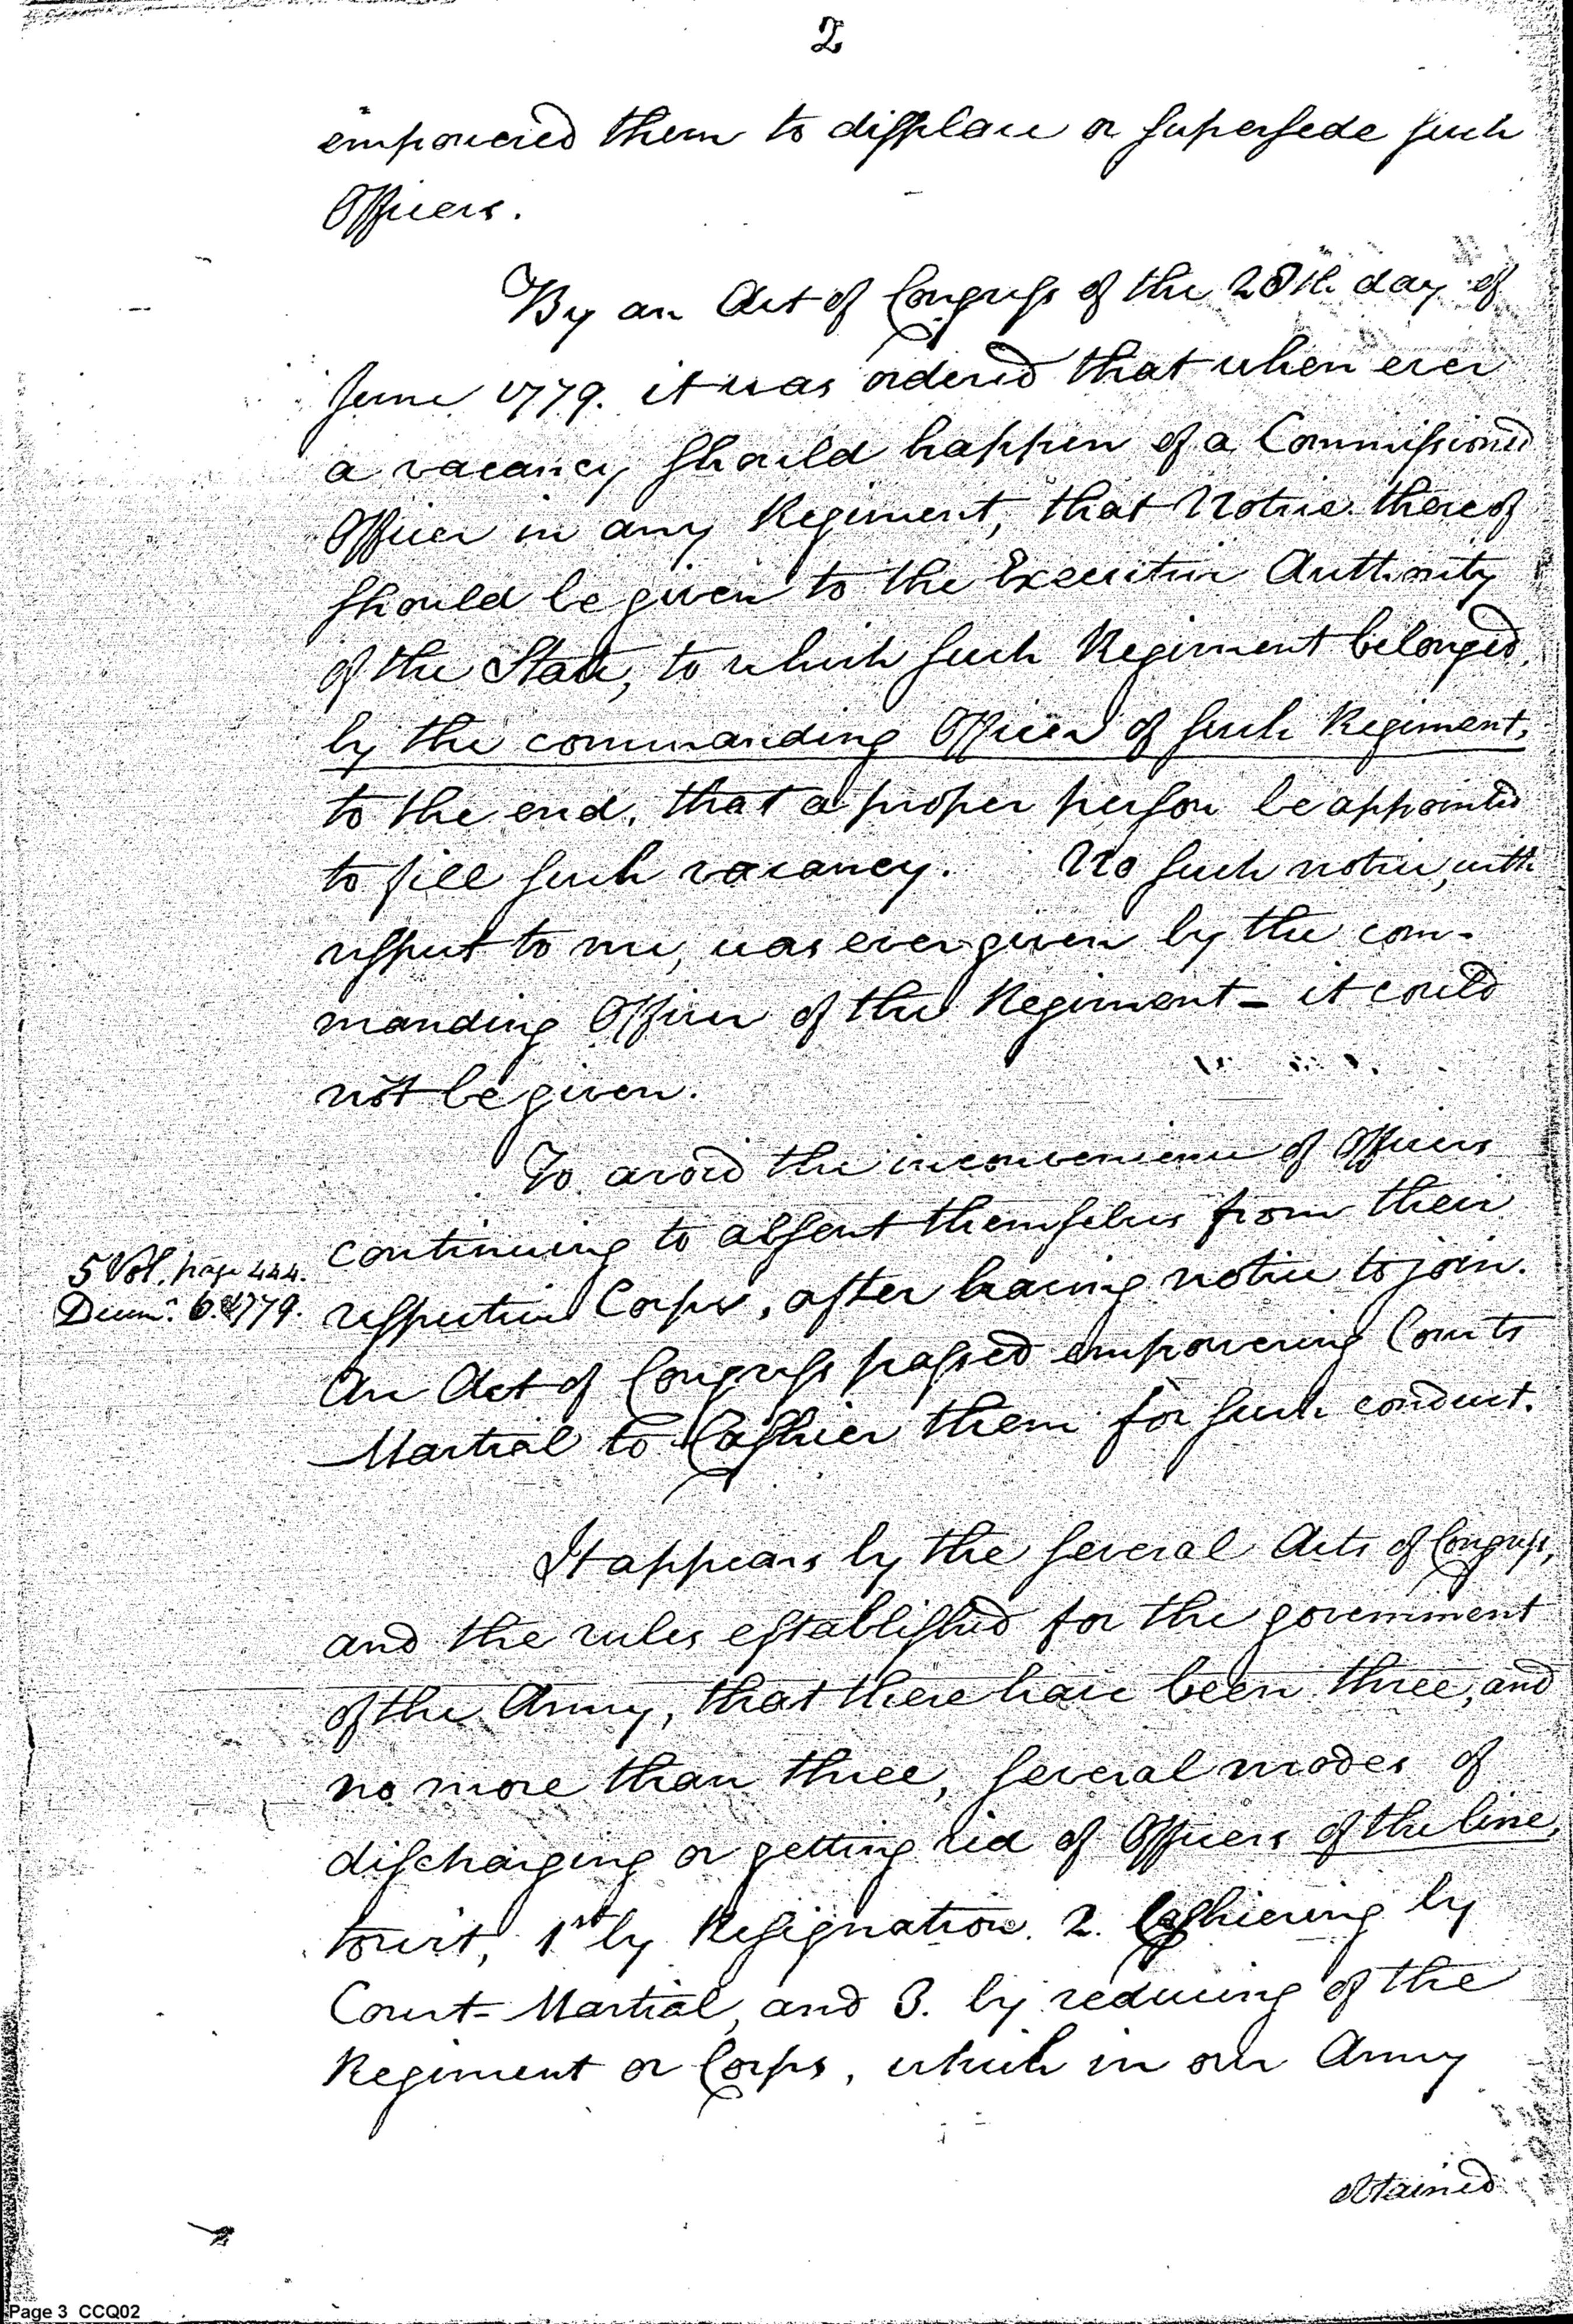 2
empowered them to displace or supersede such
Officers.
By an Act of Congress of the 28th day of
June 1779. it was ordered that when ever
a vacancy should happen of a Commissioned
Officer in any Regiment, that Notice thereof
should be given to the Executive Authority
of the State, to which such Regiment belonged,
by the commanding Officer of such Regiment,
to the end, that a proper person be appointed
to fill such vacancy. No such notice, with
respect to me, was ever given by the com-
manding Officer of the Regiment - it could
not be given.
To avoid the inconvenience of Officers
continuing to absent themselves from their
5 Vol. page 444.
Decemr. 6. 1779.
respective Corps, after having notice to join.
An Act of Congress passed empowering Courts
Martial to Cashier them for such conduct.
It appears by the several Acts of Congress,
and the rules established for the government
of the Army, that there have been three, and
no more than three, several modes of
discharging or getting rid of Officers of the line,
towit, 1st by Resignation. 2. Cashiering by
Court-Martial, and 3. by reducing of the
Regiment or Corps, which in our Army
obtained
Page 3 CCQ02